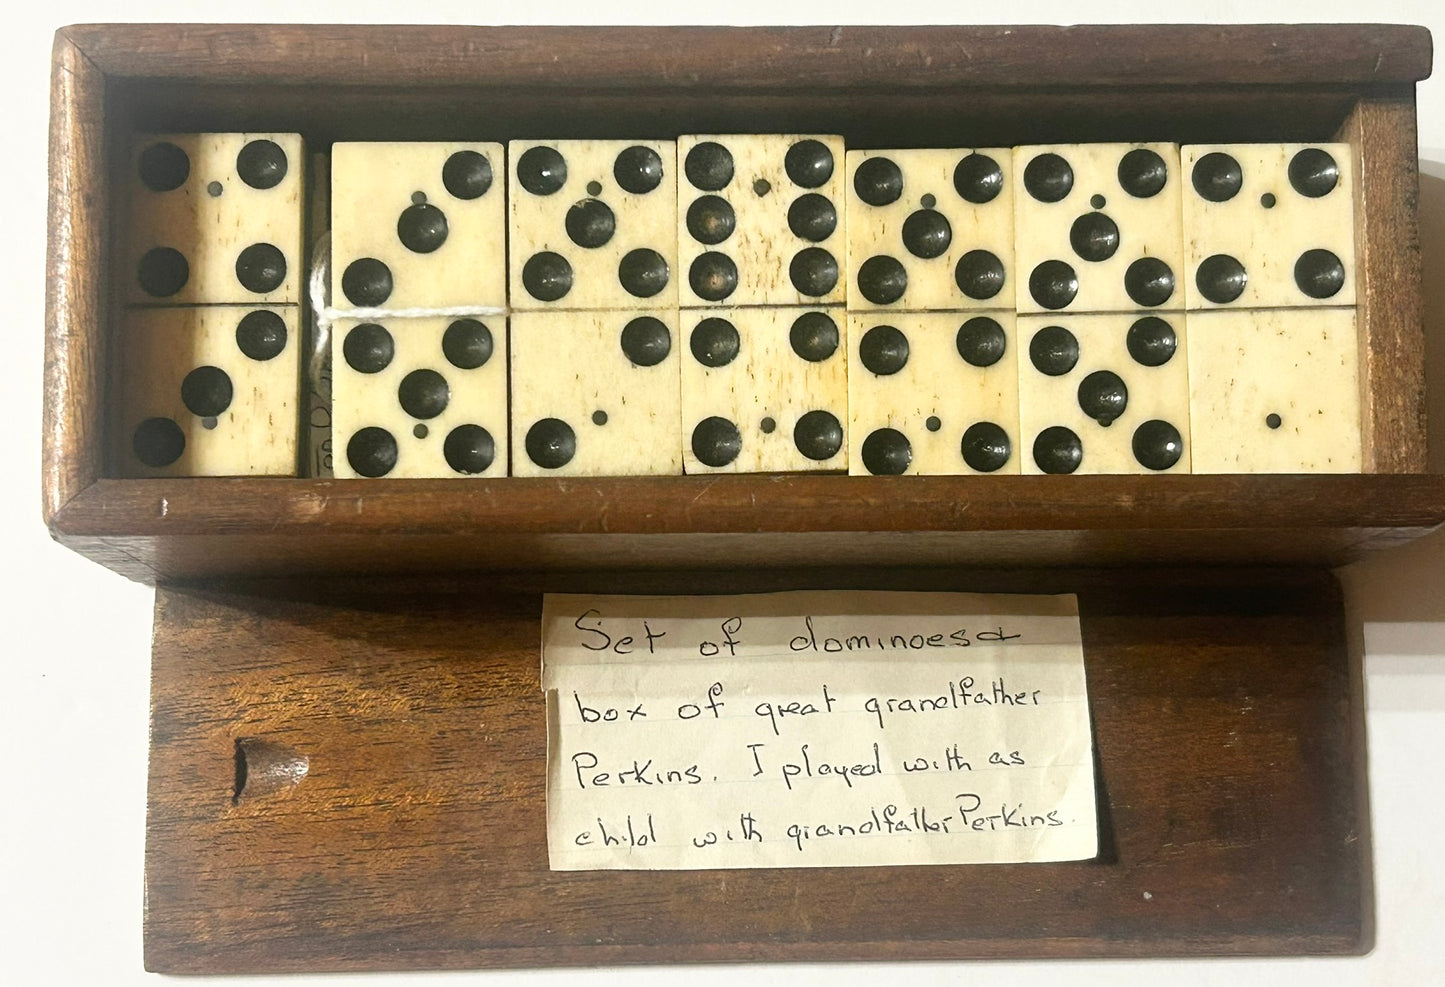 Set of dominoes &
box of great grandfather
Perkins. I played with as
child with grandfather Perkins.